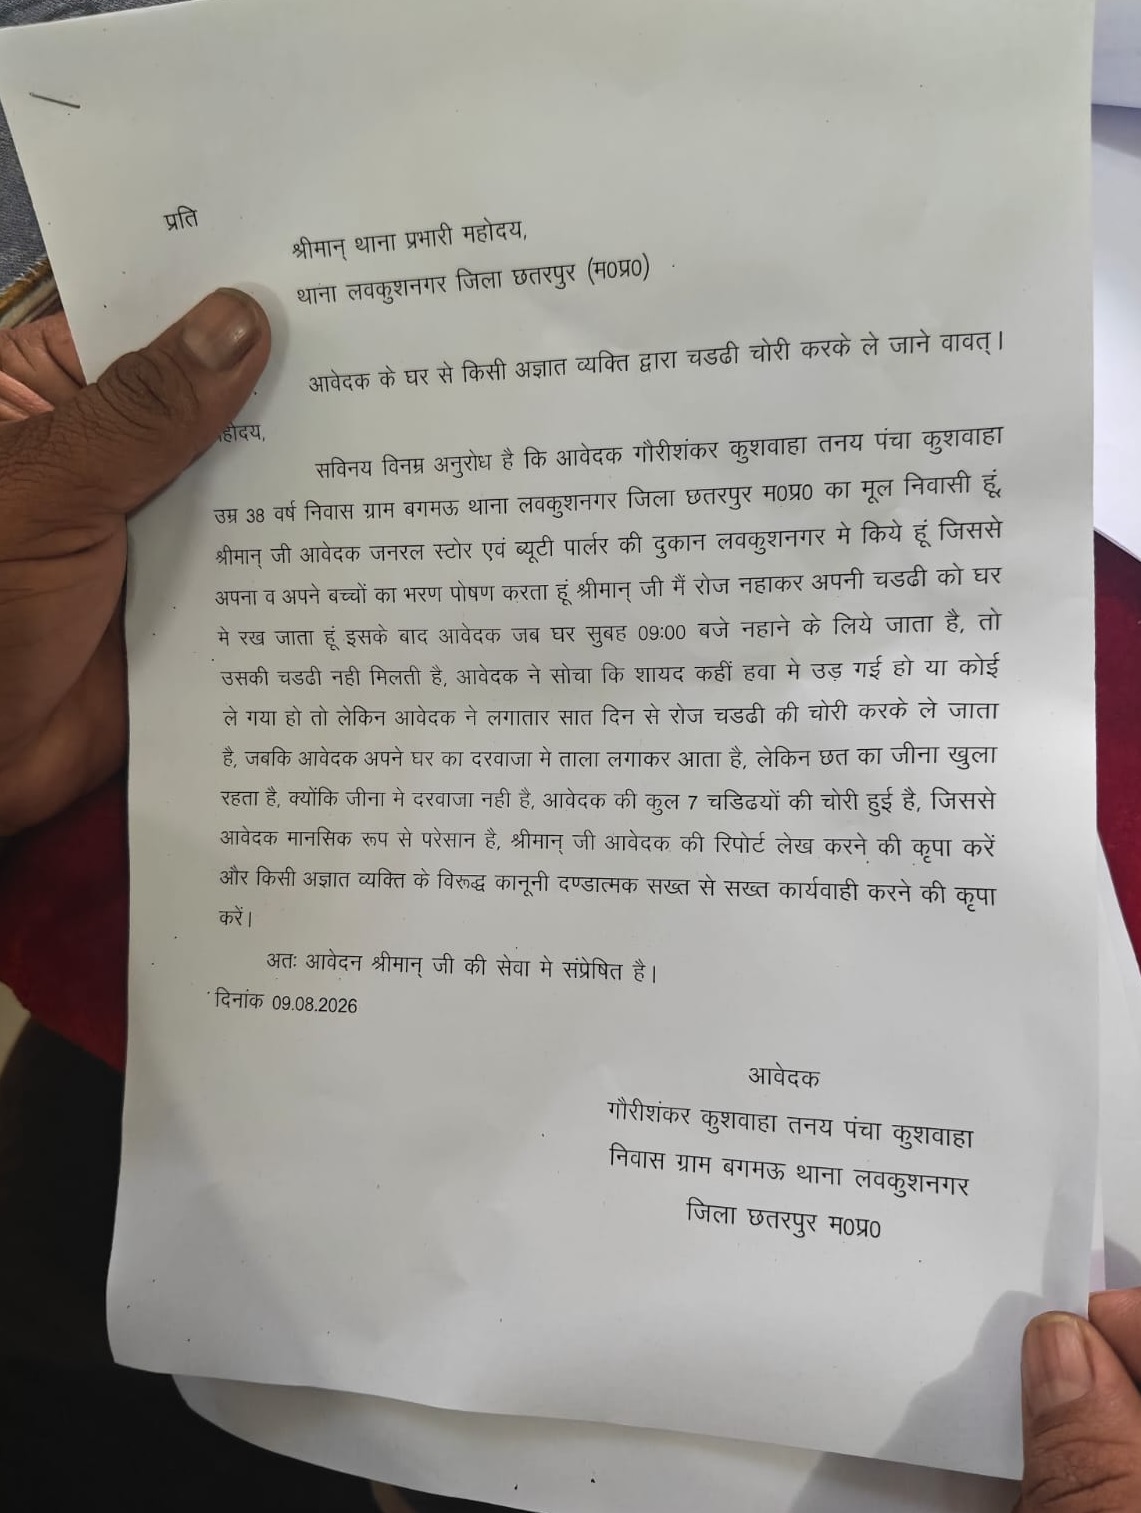 प्रति
श्रीमान् थाना प्रभारी महोदय,
थाना लवकुशनगर जिला छतरपुर (म0प्र0)
आवेदक के घर से किसी अज्ञात व्यक्ति द्वारा चडढी चोरी करके ले जाने वावत्।
होदय,
सविनय विनम्र अनुरोध है कि आवेदक गौरीशंकर कुशवाहा तनय पंचा कुशवाहा
उम्र 38 वर्ष निवास ग्राम बगमऊ थाना लवकुशनगर जिला छतरपुर म0प्र0 का मूल निवासी हूं,
श्रीमान् जी आवेदक जनरल स्टोर एवं ब्यूटी पार्लर की दुकान लवकुशनगर मे किये हूं जिससे
अपना व अपने बच्चों का भरण पोषण करता हूं श्रीमान् जी मैं रोज नहाकर अपनी चडढी को घर
मे रख जाता हूं इसके बाद आवेदक जब घर सुबह 09:00 बजे नहाने के लिये जाता है, तो
उसकी चडढी नही मिलती है, आवेदक ने सोचा कि शायद कहीं हवा मे उड़ गई हो या कोई
ले गया हो तो लेकिन आवेदक ने लगातार सात दिन से रोज चडढी की चोरी करके ले जाता
है, जबकि आवेदक अपने घर का दरवाजा मे ताला लगाकर आता है, लेकिन छत का जीना खुला
रहता है, क्योंकि जीना मे दरवाजा नही है, आवेदक की कुल 7 चडिढयों की चोरी हुई है, जिससे
आवेदक मानसिक रूप से परेसान है, श्रीमान् जी आवेदक की रिपोर्ट लेख करने की कृपा करें
और किसी अज्ञात व्यक्ति के विरूद्ध कानूनी दण्डात्मक सख्त से सख्त कार्यवाही करने की कृपा
करें।
अतः आवेदन श्रीमान् जी की सेवा मे संप्रेषित है।
दिनांक 09.08.2026
आवेदक
गौरीशंकर कुशवाहा तनय पंचा कुशवाहा
निवास ग्राम बगमऊ थाना लवकुशनगर
जिला छतरपुर म0प्र0